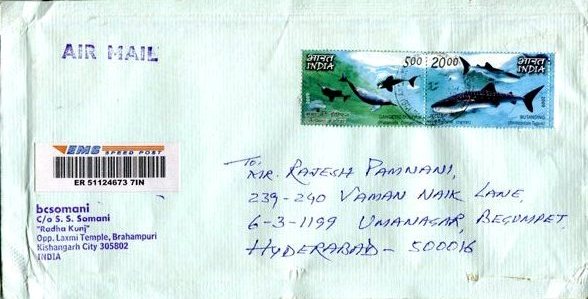 AIR MAIL
भारत 5.00
INDIA
20.00 भारत
INDIA
GANGETIC DOLPHIN
BUTANDING
2009
EMS SPEED POST
ER 51124673 7IN
bcsomani
C/o S. S. Somani
"Radha Kunj"
Opp. Laxmi Temple, Brahampuri
Kishangarh City 305802
INDIA
To,
MR. RAJESH PAMNANI,
239-240 VAMAN NAIK LANE,
6-3-1199 UMANAGAR, BEGUMPET,
HYDERABAD - 500016